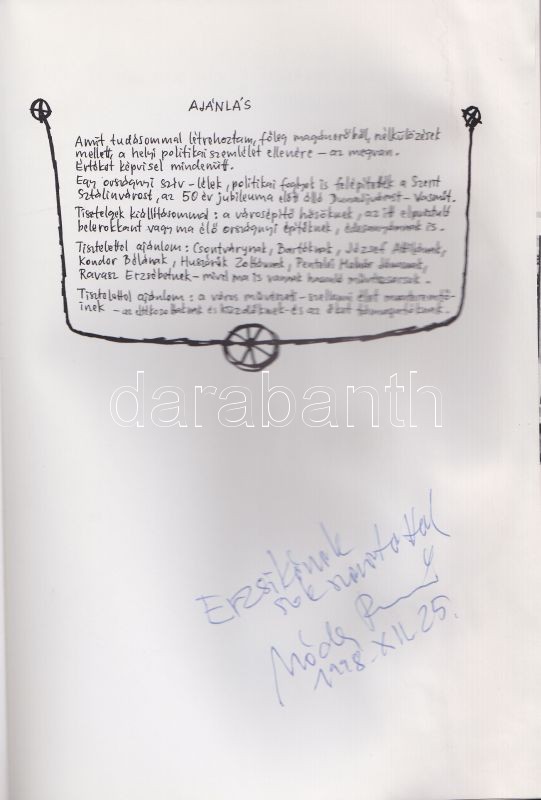 AJÁNLÁS
Amit tudásommal létrehoztam, főleg magánerőből, nélkülözések
mellett, a helyi politikai szemlélet ellenére – az megvan.
Értéket képvisel mindenütt.
Egy országnyi szív – lélek, politikai foglyok is felépítették a Szent
Sztálinvárost, az 50 év jubileuma előtt álló Dunaújvárost – Vasműt.
Tisztelgek kiállításommal : a városépítő hősöknek, az itt elpusztult
belerokkant vagy ma élő országnyi építőknek, édesanyámnak is.
Tisztelettel ajánlom : Csontvárynak, Bartóknak, József Attilának,
Kondor Bélának, Huszárik Zoltánnak, Pentelei Molnár Jánosnak,
Ravasz Erzsébetnek – mivel ma is vannak hasonló művészsorsok.
Tisztelettel ajánlom : a város művészeti – szellemi élet megteremtő-
inek – az és küzdőknek és az őket támogatóknak.
darabanth
Erzsikének
sok szeretettel
Móder R
1998. XII. 25.